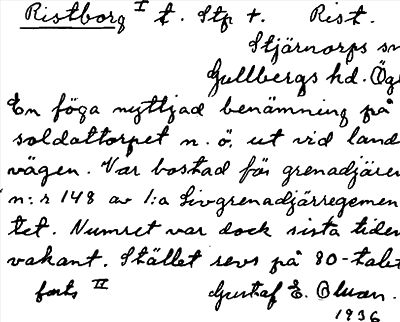 Ristborg I t. Stp t. Rist.
Stjärnorps sn
Gullbergs hd. Ög
En föga nyttjad benämning på
soldattorpet n. ö. ut vid lands
vägen. Var bostad för grenadjären
n:r 148 av 1:a Livgrenadjärregemen
tet. Numret var dock sista tiden
vakant. Stället revs på 80-talet
forts II Gustaf E. Öman.
1936